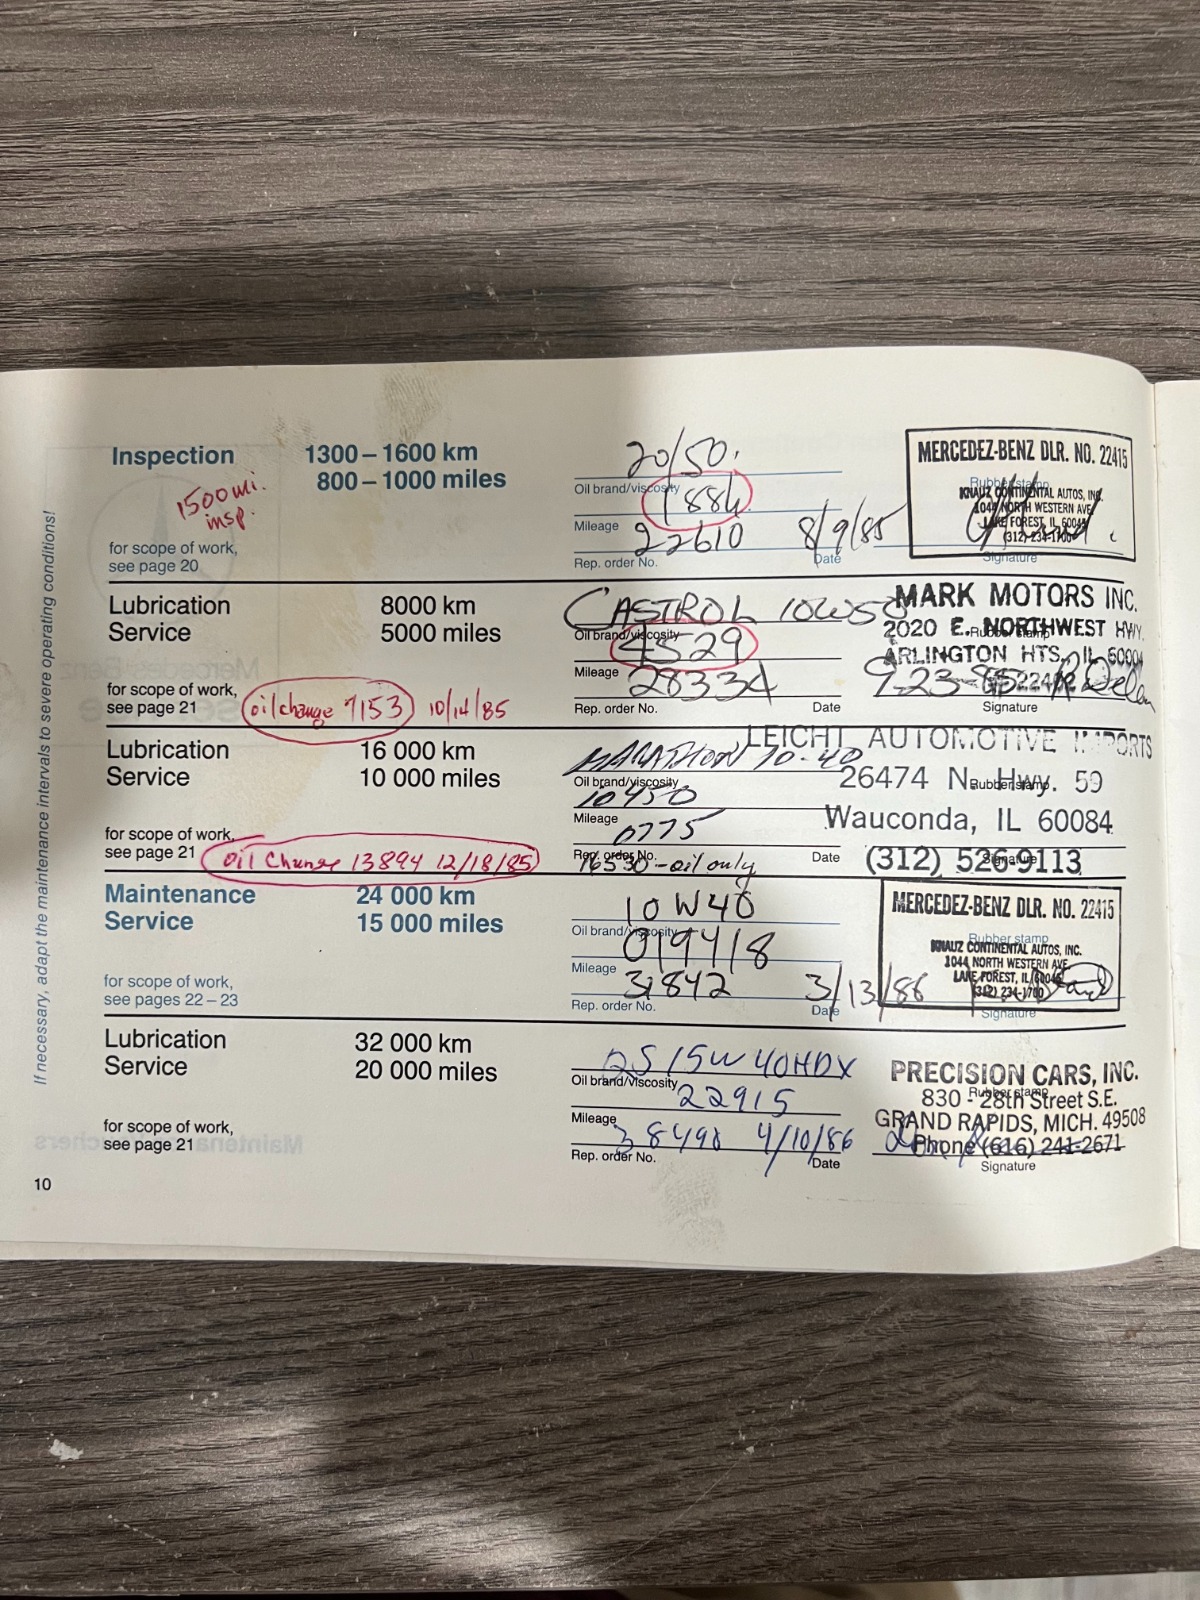 If necessary, adapt the maintenance intervals to severe operating conditions!
Inspection 1300 – 1600 km
800 – 1000 miles
1500 mi.
insp.
for scope of work,
see page 20
20/50.
Oil brand/viscosity
1884
Mileage
22610 8/9/85
Rep. order No. Date
MERCEDEZ-BENZ DLR. NO. 22415
Rubber stamp
KNAUZ CONTINENTAL AUTOS, INC.
1044 NORTH WESTERN AVE.
LAKE FOREST, IL 60045
(312) 234-1700
Signature
Lubrication 8000 km
Service 5000 miles
for scope of work,
see page 21
oil change 9153 10/14/85
CASTROL 10W50
Oil brand/viscosity
4529
Mileage
28334 9-23-85
Rep. order No. Date
MARK MOTORS INC.
2020 E. NORTHWEST HWY.
Rubber stamp
ARLINGTON HTS., IL 60004
Signature
Lubrication 16 000 km
Service 10 000 miles
for scope of work,
see page 21
oil Change 13894 12/18/85
MARATHON 10-40
Oil brand/viscosity
10450
Mileage
0775
Rep. order No. Date
16530-oil only
LEICHT AUTOMOTIVE IMPORTS
26474 N. Hwy. 59
Rubber stamp
Wauconda, IL 60084
(312) 526-9113
Signature
Maintenance 24 000 km
Service 15 000 miles
for scope of work,
see pages 22 – 23
10W40
Oil brand/viscosity
019418
Mileage
31842 3/13/86
Rep. order No. Date
MERCEDEZ-BENZ DLR. NO. 22415
Rubber stamp
KNAUZ CONTINENTAL AUTOS, INC.
1044 NORTH WESTERN AVE.
LAKE FOREST, IL 60045
(312) 234-1700
Signature
Lubrication 32 000 km
Service 20 000 miles
for scope of work,
see page 21
QS 15W40HDX
Oil brand/viscosity
22915
Mileage
38490 4/10/86
Rep. order No. Date
PRECISION CARS, INC.
Rubber stamp
830 - 28th Street S.E.
GRAND RAPIDS, MICH. 49508
Phone (616) 241-2671
Signature
10